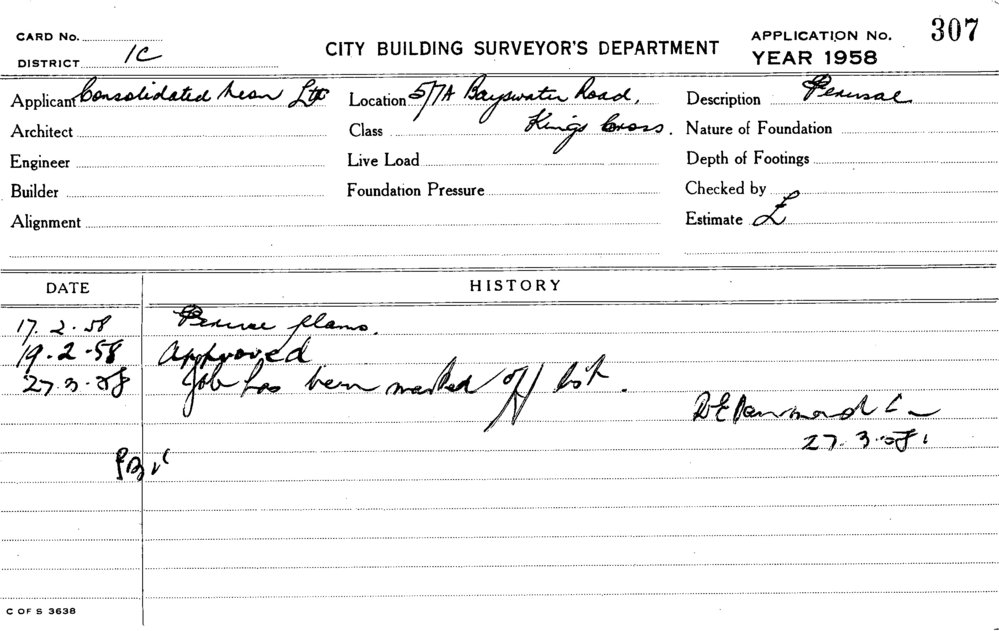 CARD No.
DISTRICT 1C
CITY BUILDING SURVEYOR'S DEPARTMENT
APPLICATION No. 307
YEAR 1958
Applicant Consolidated Neon Ltd
Location 5/7A Bayswater Road,
Description Perusal
Architect
Class Kings Cross.
Nature of Foundation
Engineer
Live Load
Depth of Footings
Builder
Foundation Pressure
Checked by
Alignment
Estimate £
DATE HISTORY
17.2.58 Peruse plans.
19.2.58 Approved
27.3.58 Job has been marked off list.
27.3.58
C OF S 3638